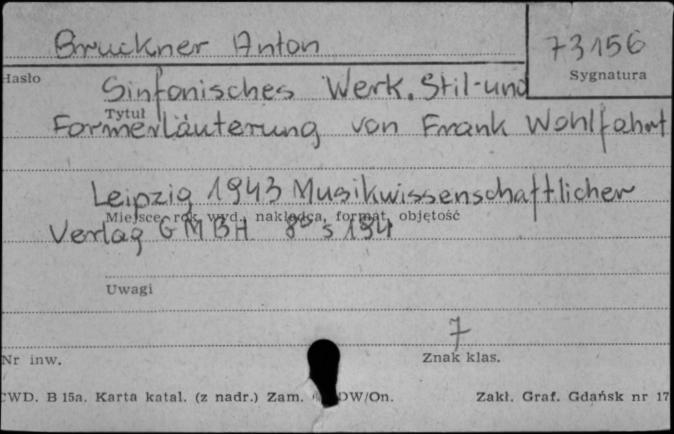 Bruckner Anton
73156
Hasło
Sygnatura
Sinfonisches Werk. Stil-und
Tytuł
Formerläuterung von Frank Wohlfahrt
Leipzig 1943 Musikwissenschaftlicher
Miejsce, rok wyd., nakładca, format, objętość
Verlag GMBH 8° s
Uwagi
7
Nr inw.
Znak klas.
CWD. B 15a. Karta katal. (z nadr.) Zam. OW/On.
Zakł. Graf. Gdańsk nr 17